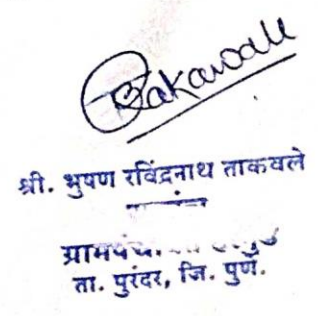 Takawale
श्री. भुषण रविंद्रनाथ ताकवले
ता. पुरंदर, जि. पुणे.